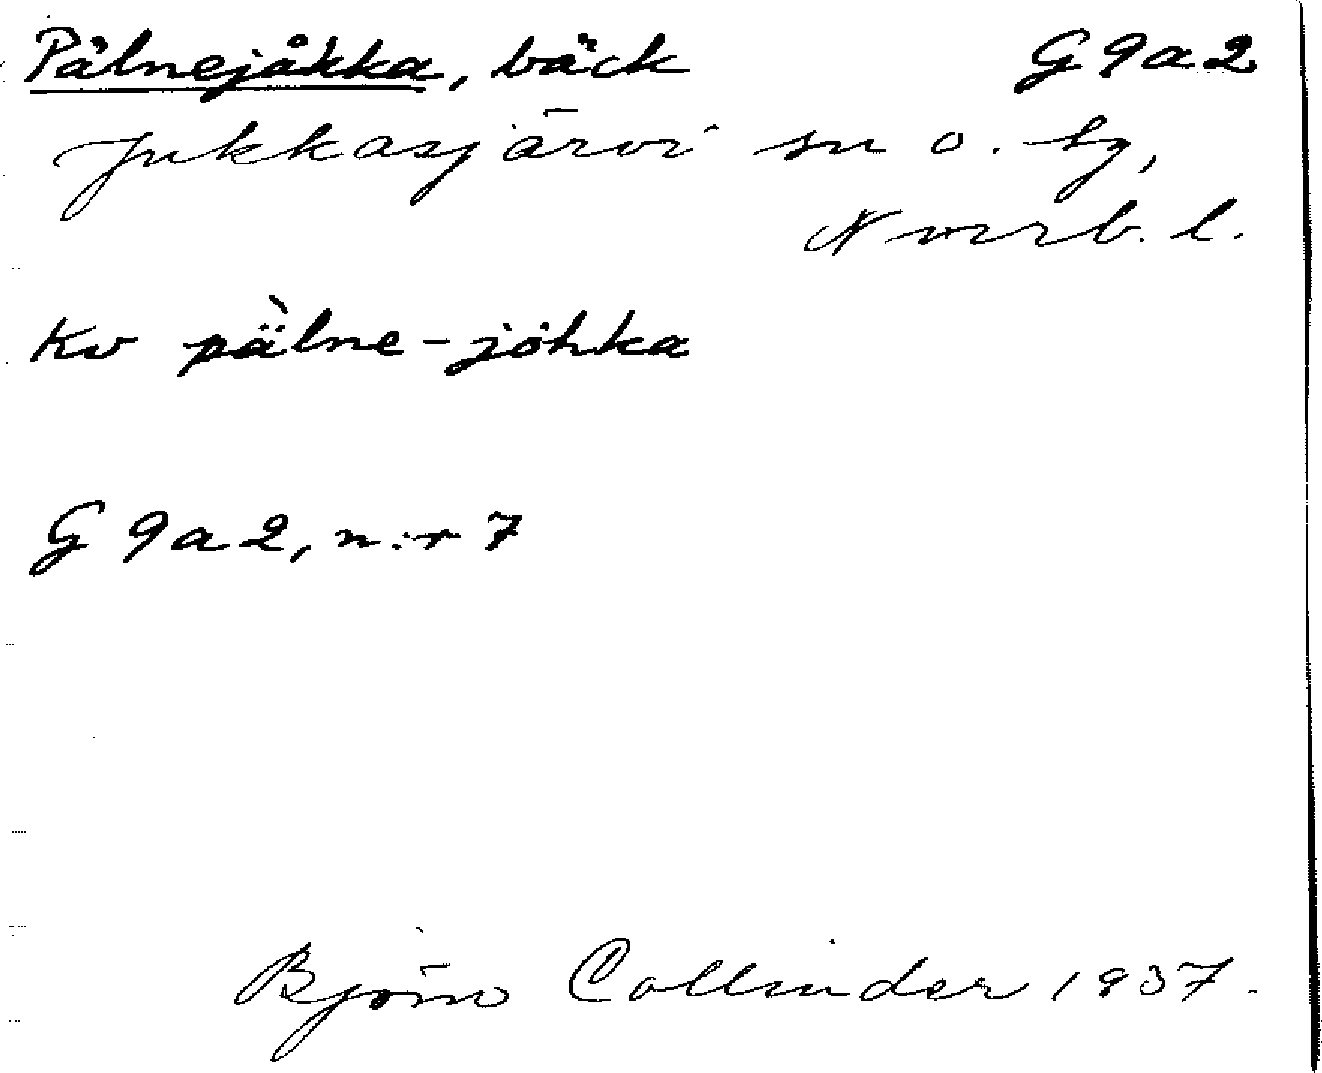 Pålnejåkka, bäck G 9 a 2
Jukkasjärvi sn o. tg,
Norrb. l.
Kv pä̀lne-jöhka
G 9 a 2, n:r 7
Björn Collinder 1937.